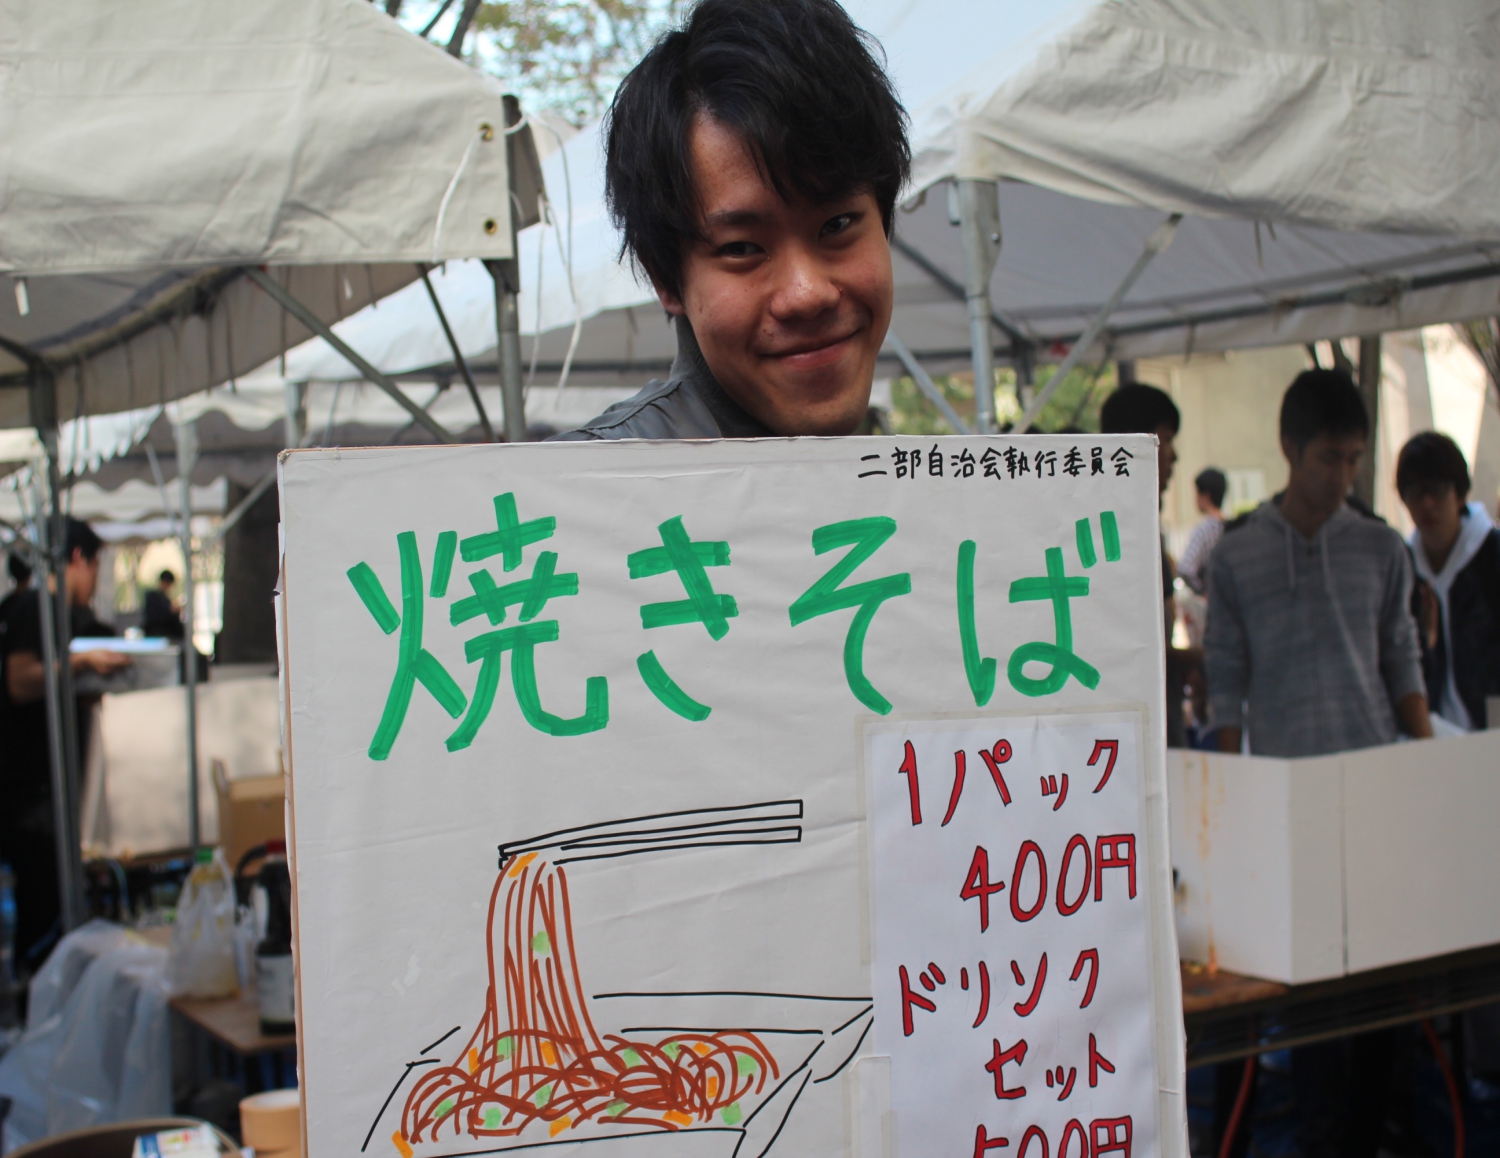 二部自治会執行委員会
焼きそば
1パック
400円
ドリンク
セット
500円